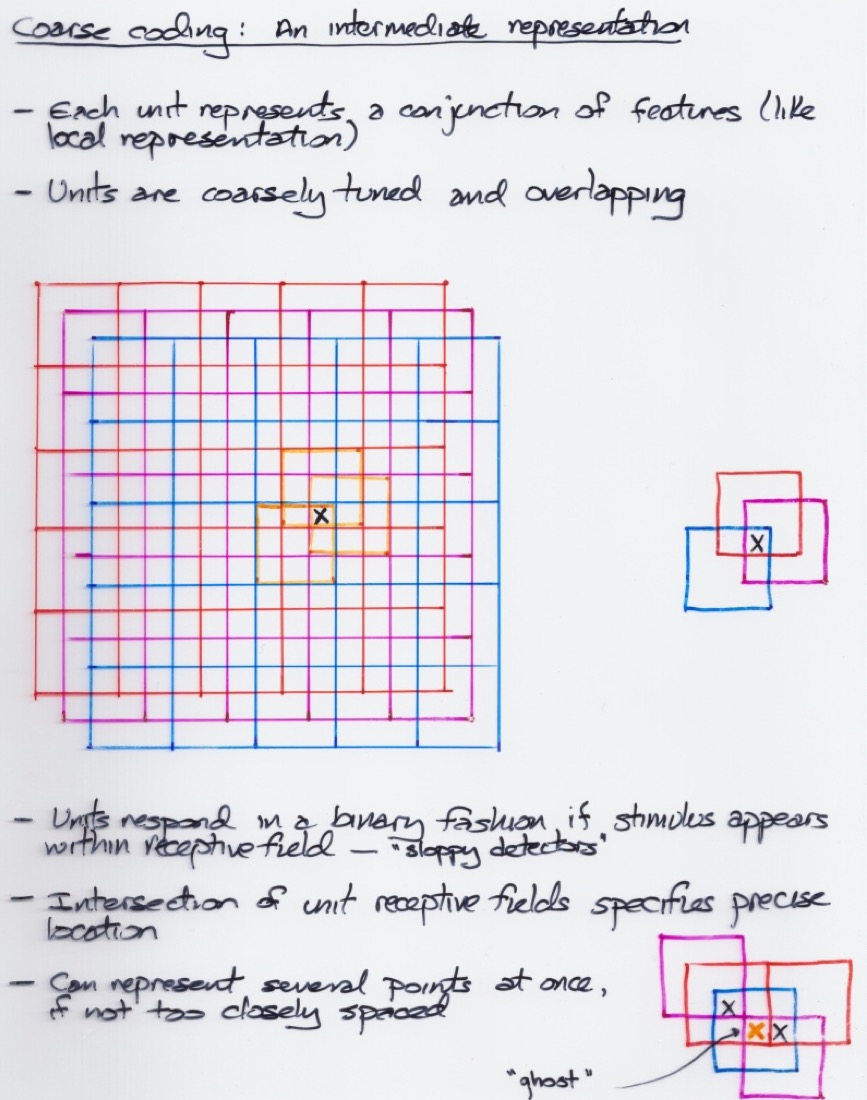 Coarse coding: An intermediate representation
- Each unit represents a conjunction of features (like
local representation)
- Units are coarsely tuned and overlapping
X
X
- Units respond in a binary fashion if stimulus appears
within receptive field — "sloppy detectors"
- Intersection of unit receptive fields specifies precise
location
- Can represent several points at once,
if not too closely spaced
X
X X
"ghost"